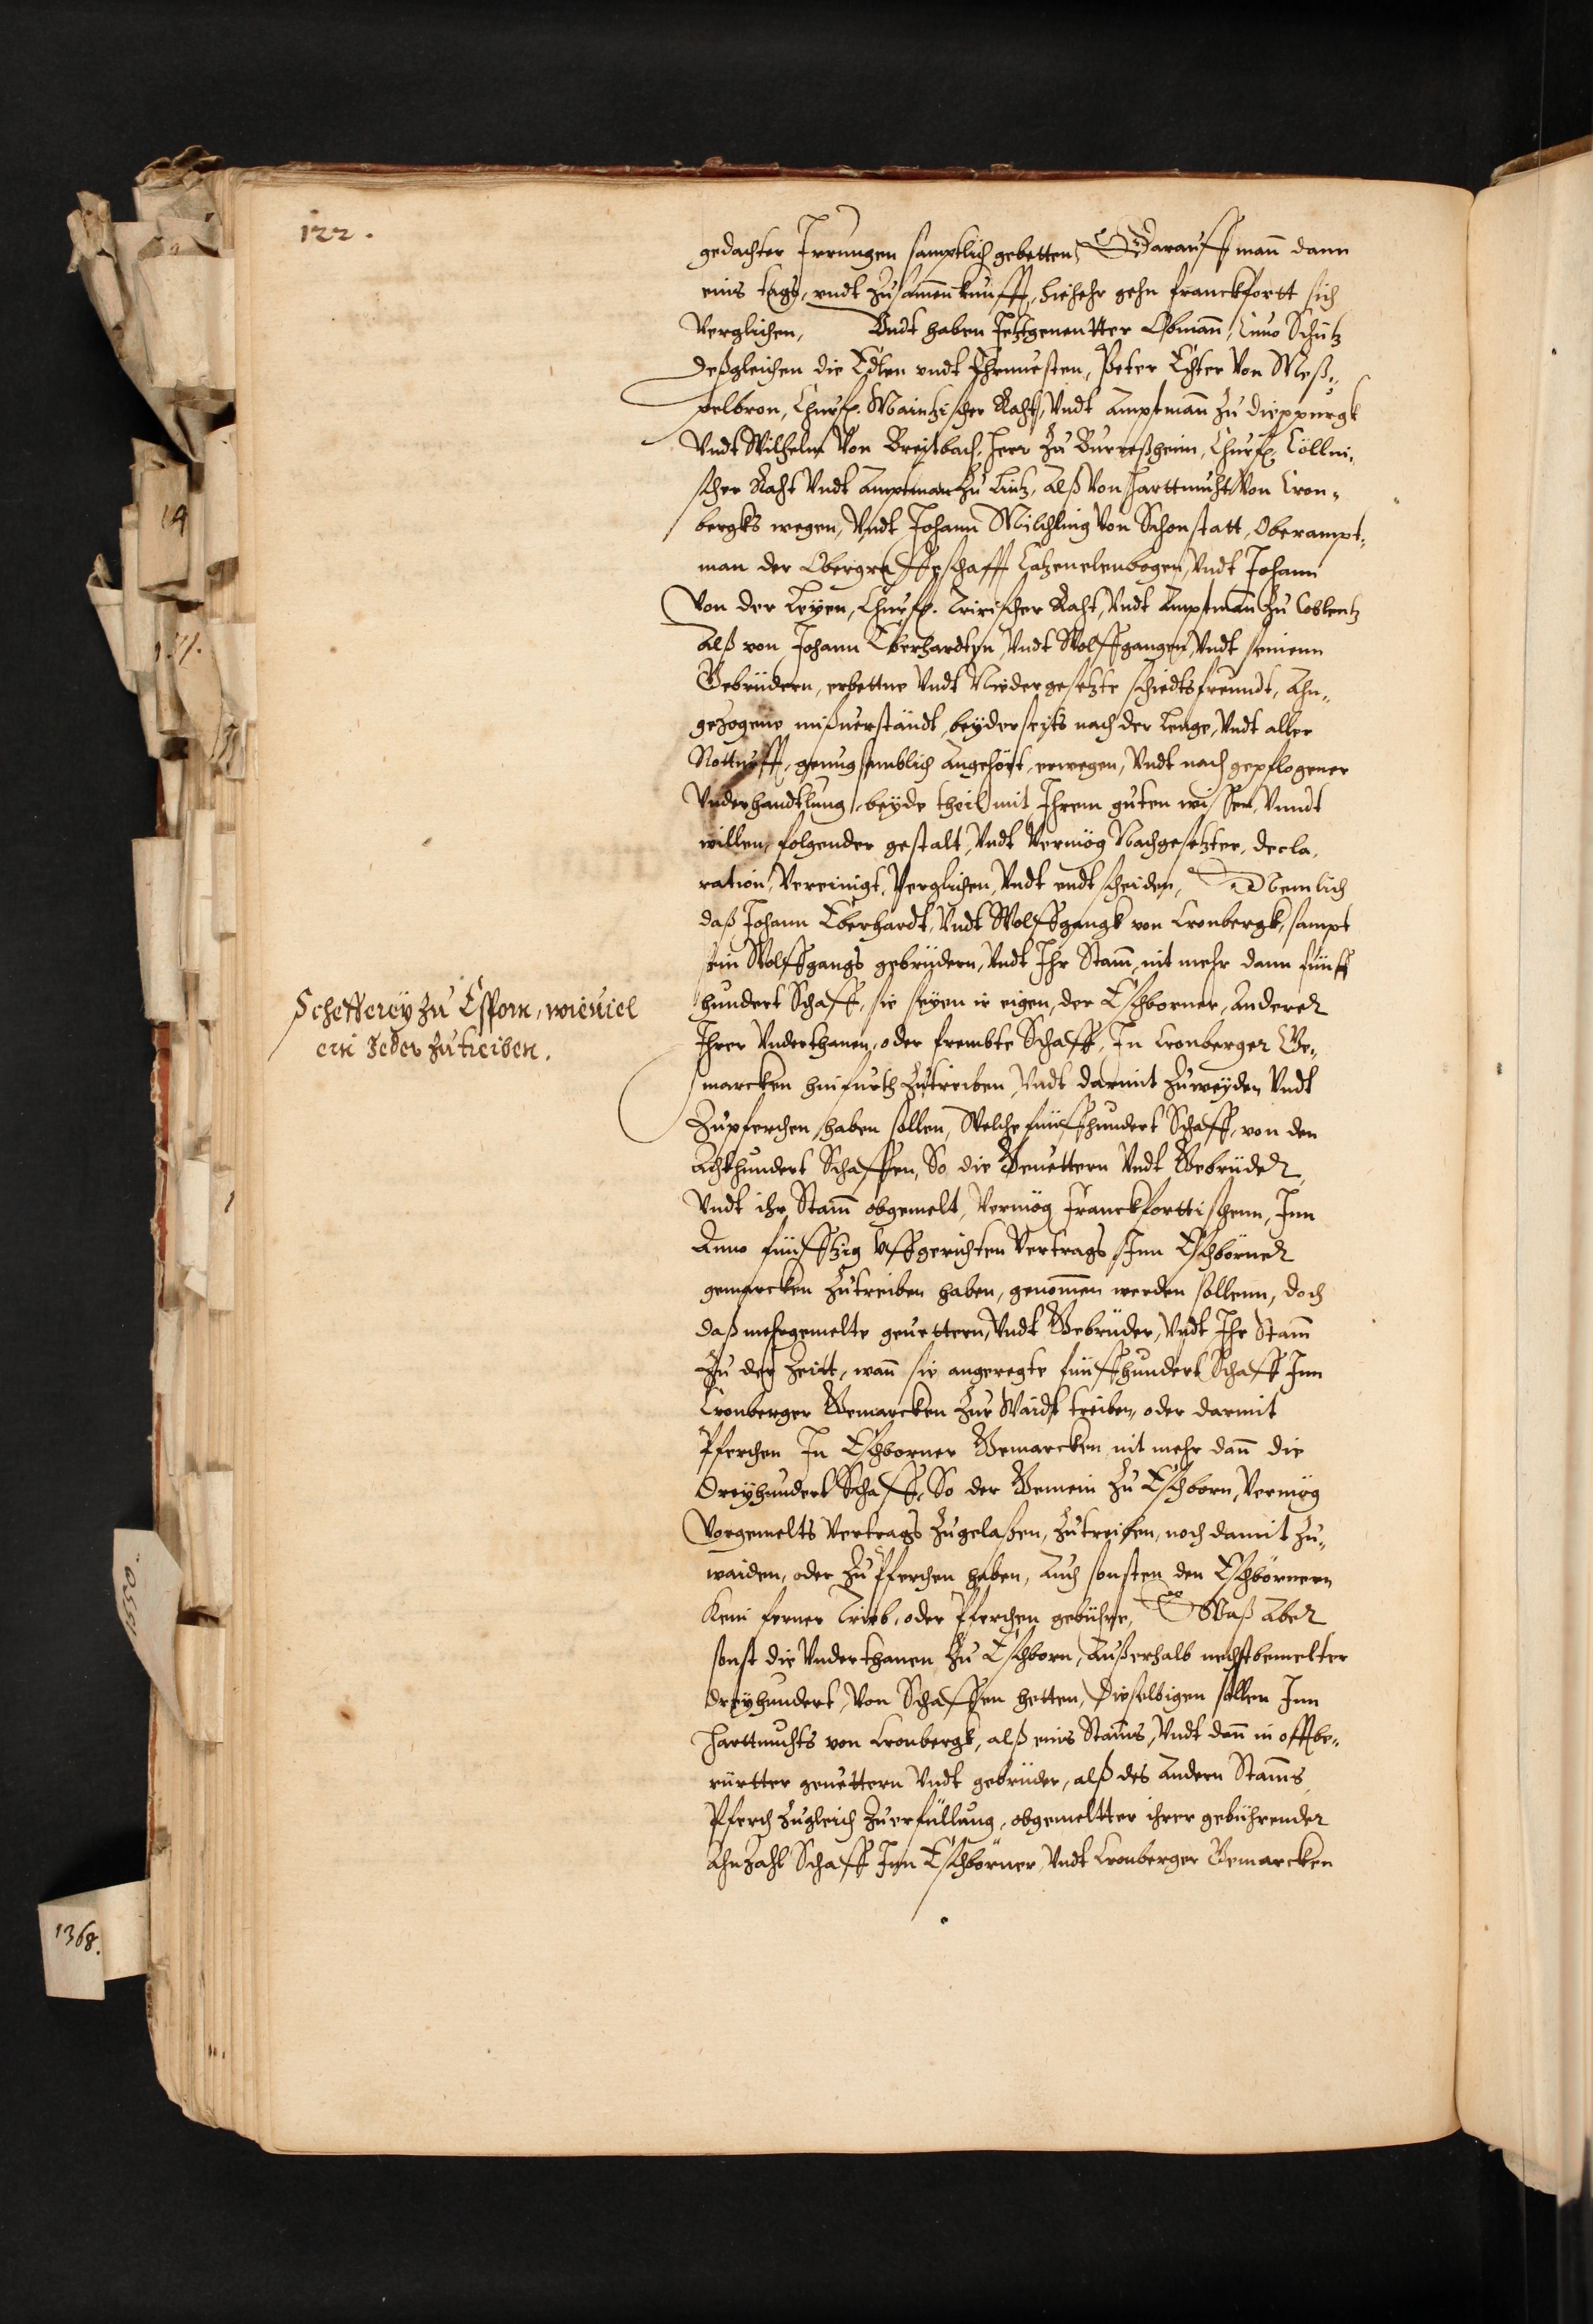 122.
gedachter Irrungen samptlich gebetten, Darauff mann dann
eins tags, undt zusamenkunfft, hiehehr gehn franckfortt sich
Verglichen, Undt haben Jetztgenentter Obmann, Cuno Schutz
deßgleichen die Edlen undt Ehrnuesten, Peter Echter Von Meß„
pelbron, Churf. Maintzischer Raht, Undt Amptmann zu dieppurgk
Undt Wilhelm Von Breitbach, herr zu Burreßheim, Churf. Cöllni„
scher Raht Undt Amptman zu Lintz, Alß Von Harttmuht Von Cron„
bergks wegen, Undt Johann Milchling Von Schonstatt, Oberampt„
man der Obergraffschafft Catzenelenbogen, Undt Johann
Von der Leyen, Churf. Tririscher Raht, Undt Amptmann zu Coblentz
Alß von Johann Eberhardten, Undt Wolffgangen, Undt seinenn
Gebrüdern, erbettne Undt Nidergesetzte schiedtsfreundt, Ahn„
gezogene mißuerständt, beyderseits nach der Lenge, Undt aller
Notturfft, genugsamblich Angehört, erwegen, Undt nach gepflogener
Underhandtlung, beyde theil mit Ihrem guten wissen, Unndt
willen, folgender gestalt, Undt Vermög Nachgesetzter, decla„
ration, Vereinigt, Verglichen, Undt endtscheiden, Nemlich
daß Johann Eberhardt, Undt Wolffgangk von Cronbergk, sampt
sein Wolffgangs gebrüdern, Undt Ihr Stamm, nit mehr dann funff
Schefferey zu Esporn, wieuiel
ein Jeder zutreiben.
hundert Schaff, sie seyen ir eigen, der Eschborner, Anderer
Ihrer Underthanen, oder frembte Schaff, In Cronberger Ge„
marcken hinfurth zutreiben, Undt darmit zuweyden Undt
Zupferchen, haben sollen, Welche funffhundert Schaff, von den
Achthundert Schaffen, So die Geuettern Undt Gebrüder,
Undt ihr Stamm obgemelt, Vermög Franckforttischenn, Inn
Anno fünfftzig Uffgerichten Vertrags Inn Eschborner
gemarcken zutreiben haben, genommen werden sollenn, doch
daß mehrgemelte geuettern, Undt Gebrüder, Undt Ihr Stamm
Zu der Zeitt, wann sie angeregte funffhundert Schaff Inn
Cronberger Gemarcken zur Waidt treiben, oder darmit
Pferchen In Eschborner Gemarcken nit mehr dann die
dreyhundert Schaff, So der Gemein zu Eschborn, Vermög
Vorgemelts Vertrags zugelaßen, zutreiben, noch damit zu„
waiden, oder zu Pferchen haben, Auch sonsten den Eschbornern
Kein ferner Trieb, oder Pferchen gebühre, Waß Aber
sonst die Underthanen zu Eschborn, Außerhalb nechstbemelter
dreyhundert, Von Schaffen hetten, dieselbigen sollen Inn
Harttmuhts von Cronbergk, alß eins Stamms, Undt dann in offtbe„
rürtter geuettern Undt gebrüder, alß des Andern Stamms,
Pferch zugleich zuerfüllung, obgemeltter ihrer gebührender
Ahnzahl Schaff Inn Eschborner, Undt Cronberger Gemarcken
1550.
1368.